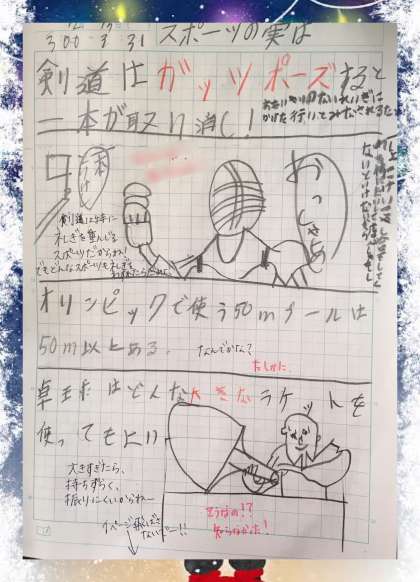 300 8 31 スポーツの実は
剣道はガッツポーズすると
一本が取り消し!
おもいやりのないれいぎに
かけた行いとみなされるため
一本
おっしゃあ
剣道は特に
れいぎを重んじる
スポーツだからね!
でもどんなスポーツもれいぎを
オリンピックで使う50mプールは
50m以上ある。
なんでかな?
たしかに、
卓球はどんな大きなラケットを
使っても上い
大きすぎたら、
持ちずらく、
振りにくいからねー
そうなの!?
知らなかった!
1ページ飛ばさ
ないでー!!